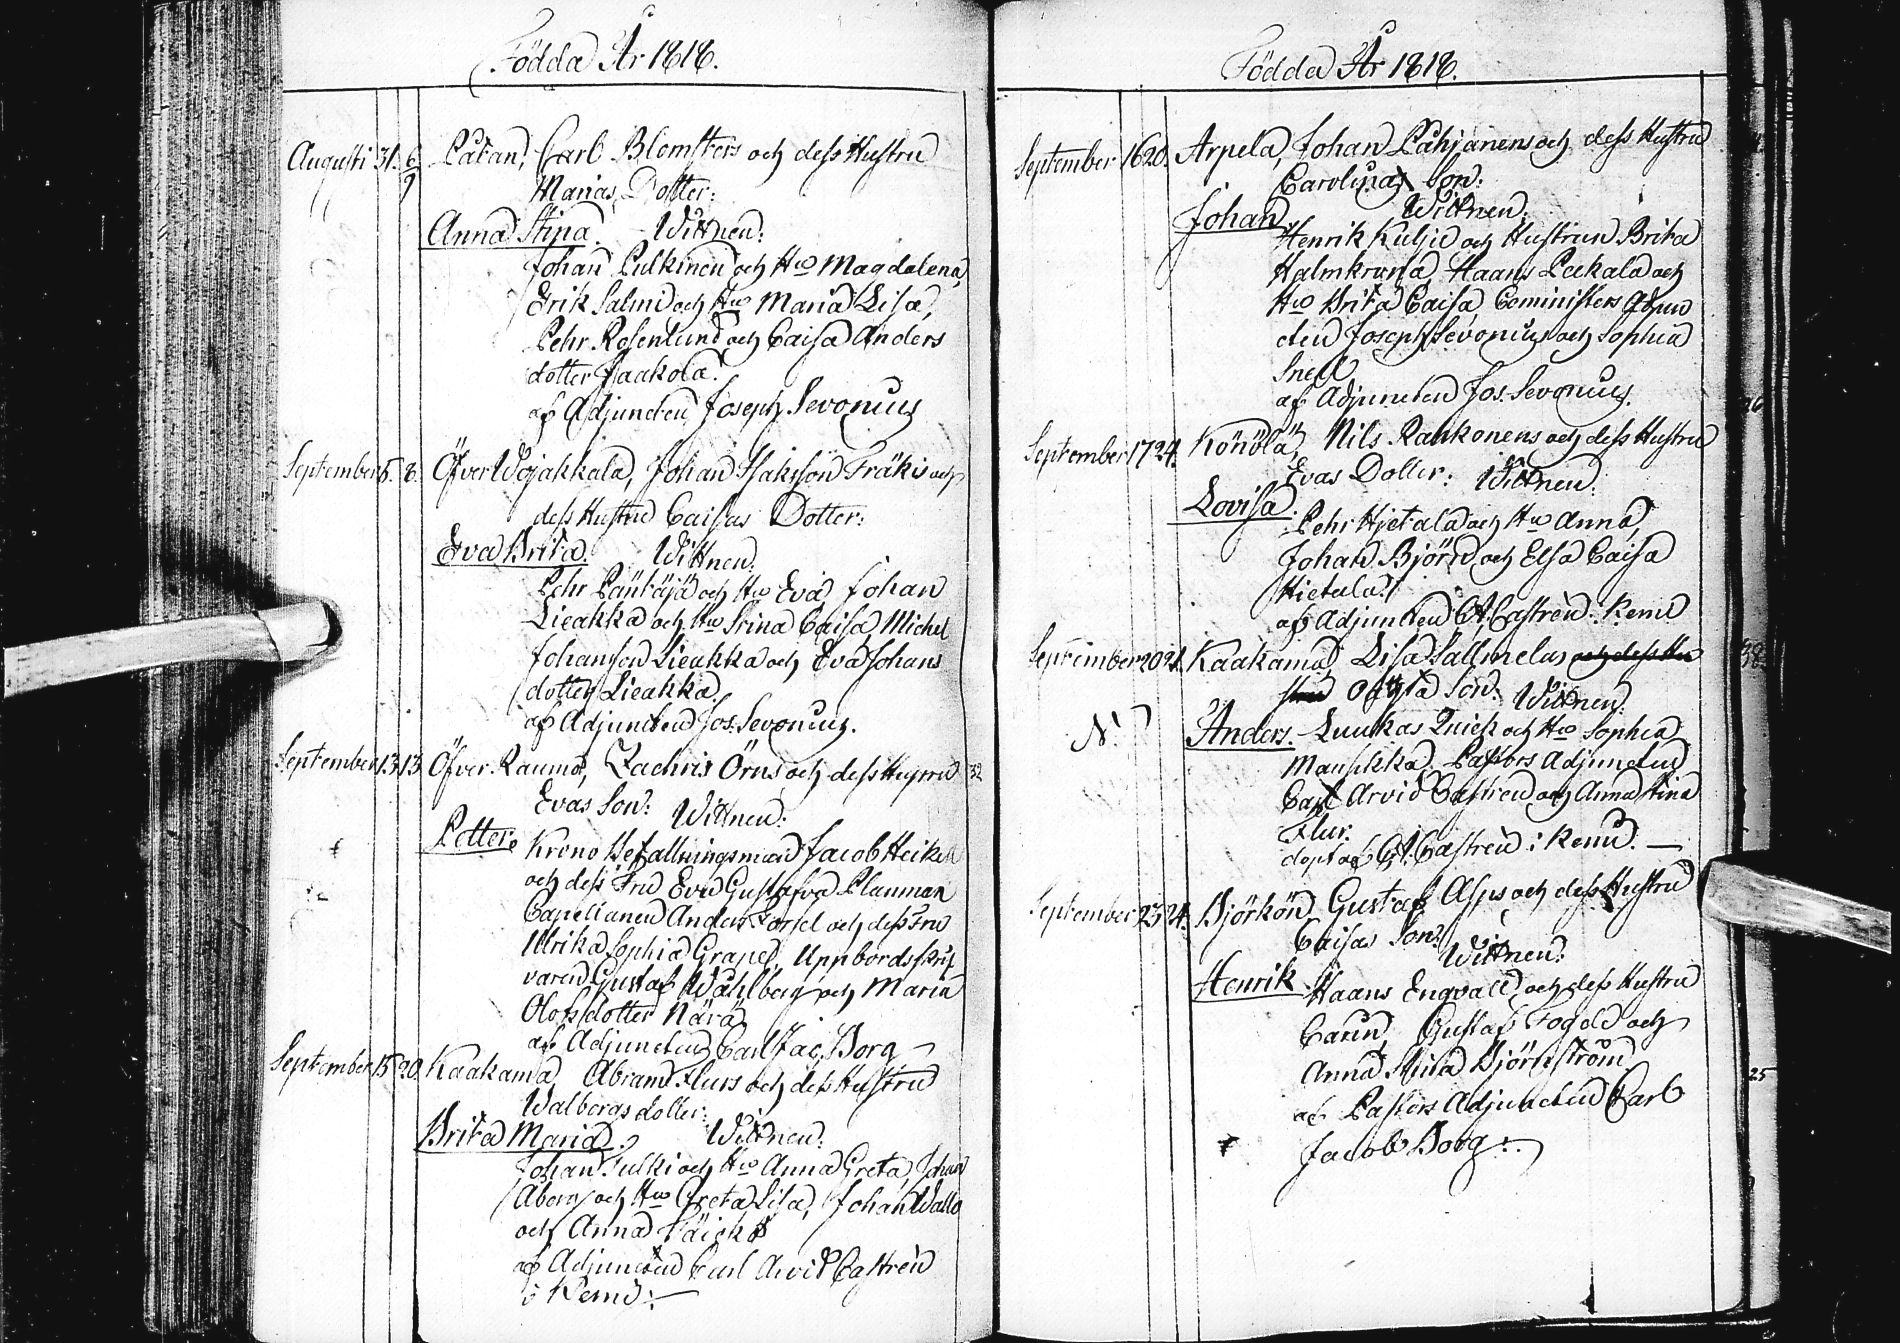 Födda År 1818.
Augusti 31. 6/9 Laëan, Carl Blomsters och dess Hustru
Marias Dotter:
Anna Stina. Wittnen:
Johan Pulkinen och Hu Magdalena,
Erik Salmi och Hu Maria Lisa,
Pehr Rosenlund och Caisa Anders
dotter Jaakola.
af Adjuncten Joseph Sevonius
September 6. 8. Öfver Wojakkala, Johan Isaksson Fräki och
dess Hustru Caisas Dotter:
Eva Brita. Wittnen:
Pehr och Hu Eva Johan
Lieakka och Hu Stina Caisa, Michel
Johansson Lieakka och Eva Johans
dotter Lieakka,
af Adjuncten Jos. Sevonius.
September 13. 13. Öfver Raumo, Zachris Örns och dess Hustru 32
Evas Son: Wittnen:
Petter. Krono Befallningsman Jacob Heikel
och dess Fru Eva Gustafva Planman
Capellanen Anders och dess Fru
Ulrika Sophia Grape, Uppbordsskrif
varen Gustaf Wahlberg och Maria
Olofsdotter Närä
af Adjuncten Carl Jac. Borg
September 15. 20. Kaakama, Abram Flurs och dess Hustru
Walborgs dotter:
Brita Maria. Wittnen:
Johan Tulki och Hu Anna Greta, Johan
Aborn och Hu Greta Lisa, Johan Wallo
och Anna
af Adjuncten Carl Arvid Castrén
i Kemi:
Födda År 1818.
September 16 20. Arpela, Johan Pahjanens och dess Hustru
Carolinas Son:
Johan Wittnen:
Henrik Kuljo och Hustrun Brita
Halmkrona, Haans Pekala och
Hu Brita Caisa Cominsters Adjun
cten Joseph Sevonius och Sophia
Snell
af Adjuncten Jos. Sevonius.
September 17 24. Könölä, Nils Rankonens och dess Hustru
Evas Dotter: Wittnen:
Lovisa.
Pehr Hjetala och Hu Anna,
Johan Björn och Elsa Caisa
Hietala.
af Adjuncten C A Castrén i Kemi
September 20 21. Kaakama, Lisa Sallmelas och dess Hu
stru oägta Son. Wittnen:
Anders. Luukas Quick och Hu Sophia
Mausikka. Pastors Adjuncten
Carl Arvid Castrén och Anna Stina
Flur.
döpt af C A Castrén i Kemi.
September 23 24. Björkön, Gustaf Asps och dess Hustru
Caisas Son:
Wittnen:
Henrik. Haans Engvall, och dess Hustru
Carin, Gustaf Fogde och
Anna Stina Björnström
af Pastors Adjuncten Carl
Jacob Borg:
25